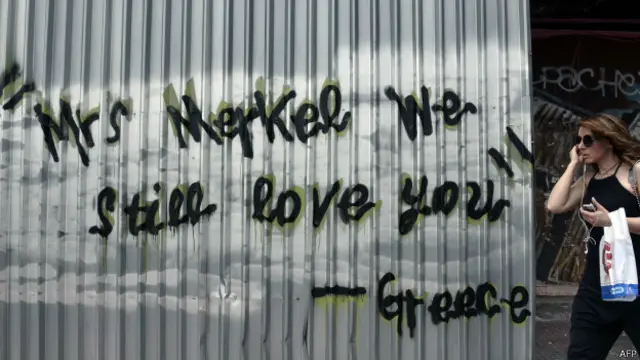 "Mrs Merkel We
still love you"
— Greece
AFP